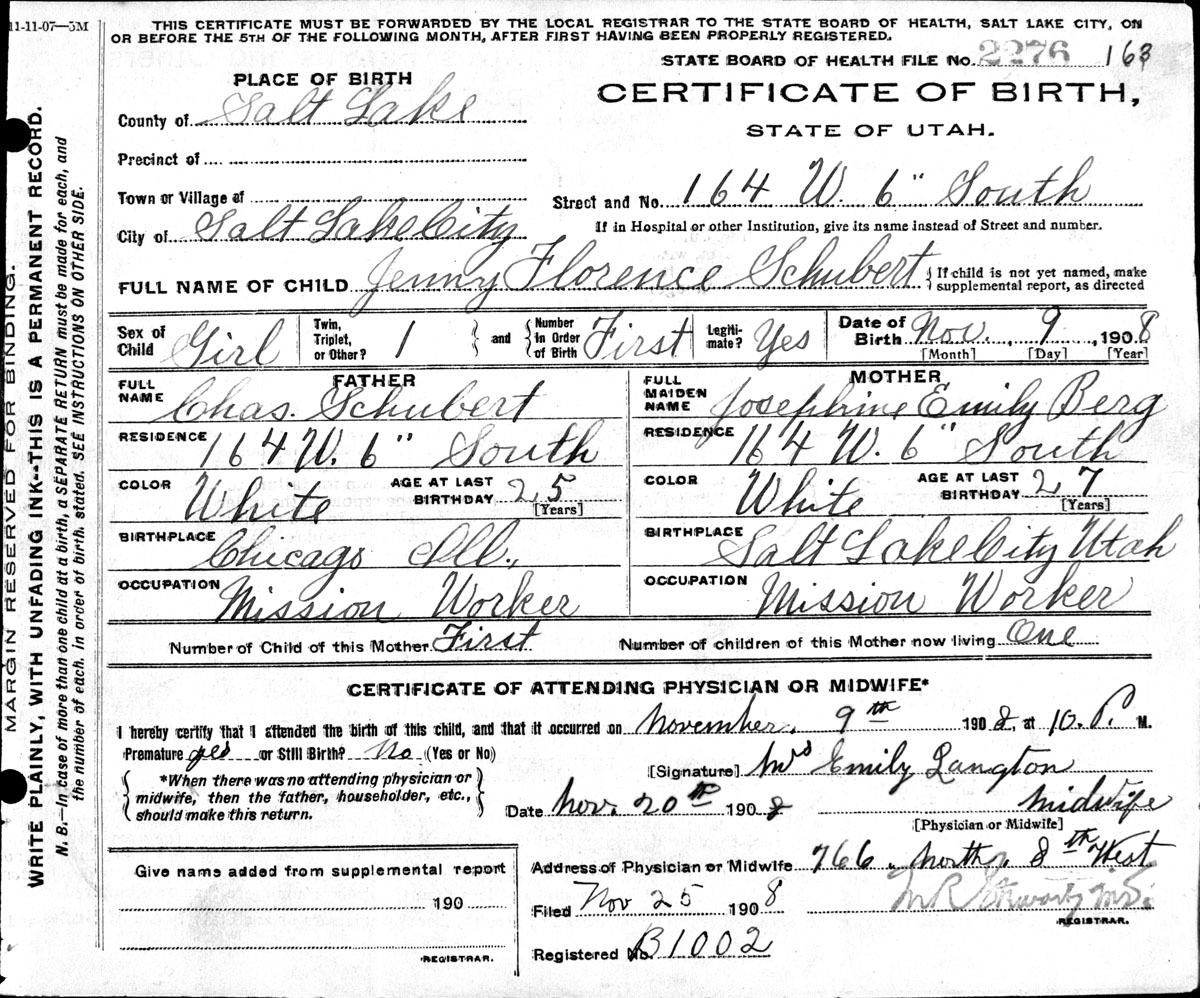 11-11-07—5M
THIS CERTIFICATE MUST BE FORWARDED BY THE LOCAL REGISTRAR TO THE STATE BOARD OF HEALTH, SALT LAKE CITY, ON
OR BEFORE THE 5TH OF THE FOLLOWING MONTH, AFTER FIRST HAVING BEEN PROPERLY REGISTERED.
STATE BOARD OF HEALTH FILE No. 2276 163
PLACE OF BIRTH
CERTIFICATE OF BIRTH,
STATE OF UTAH.
County of Salt Lake
Precinct of
Town or Village of
Street and No. 164 W. 6" South
City of Salt Lake City
If in Hospital or other Institution, give its name instead of Street and number.
FULL NAME OF CHILD Jenny Florence Schubert { If child is not yet named, make
supplemental report, as directed
Sex of Child Girl Twin, Triplet, or Other? 1 } and { Number in Order of Birth First Legiti-mate? Yes Date of Birth Nov. 9, 1908
[Month] [Day] [Year]
FATHER MOTHER
FULL NAME Chas. Schubert FULL MAIDEN NAME Josephine Emily Berg
RESIDENCE 164 W. 6" South RESIDENCE 164 W. 6" South
COLOR White AGE AT LAST BIRTHDAY 25 [Years] COLOR White AGE AT LAST BIRTHDAY 27 [Years]
BIRTHPLACE Chicago Ill., BIRTHPLACE Salt Lake City Utah
OCCUPATION Mission Worker OCCUPATION Mission Worker
Number of Child of this Mother First Number of children of this Mother now living One
CERTIFICATE OF ATTENDING PHYSICIAN OR MIDWIFE*
I hereby certify that I attended the birth of this child, and that it occurred on November. 9th 1908, at 10. P. M.
Premature yes or Still Birth? No (Yes or No)
{ *When there was no attending physician or
midwife, then the father, householder, etc.,
should make this return. }
[Signature] Mrs Emily Langton
Date Nov. 20th 1908 Midwife
[Physician or Midwife]
Give name added from supplemental report
190
REGISTRAR.
Address of Physician or Midwife 766. North, 8th West
Filed Nov 25 1908
REGISTRAR.
Registered No. B1002
MARGIN RESERVED FOR BINDING.
WRITE PLAINLY, WITH UNFADING INK--THIS IS A PERMANENT RECORD.
N. B.—In case of more than one child at a birth, a SEPARATE RETURN must be made for each, and
the number of each, in order of birth, stated. SEE INSTRUCTIONS ON OTHER SIDE.